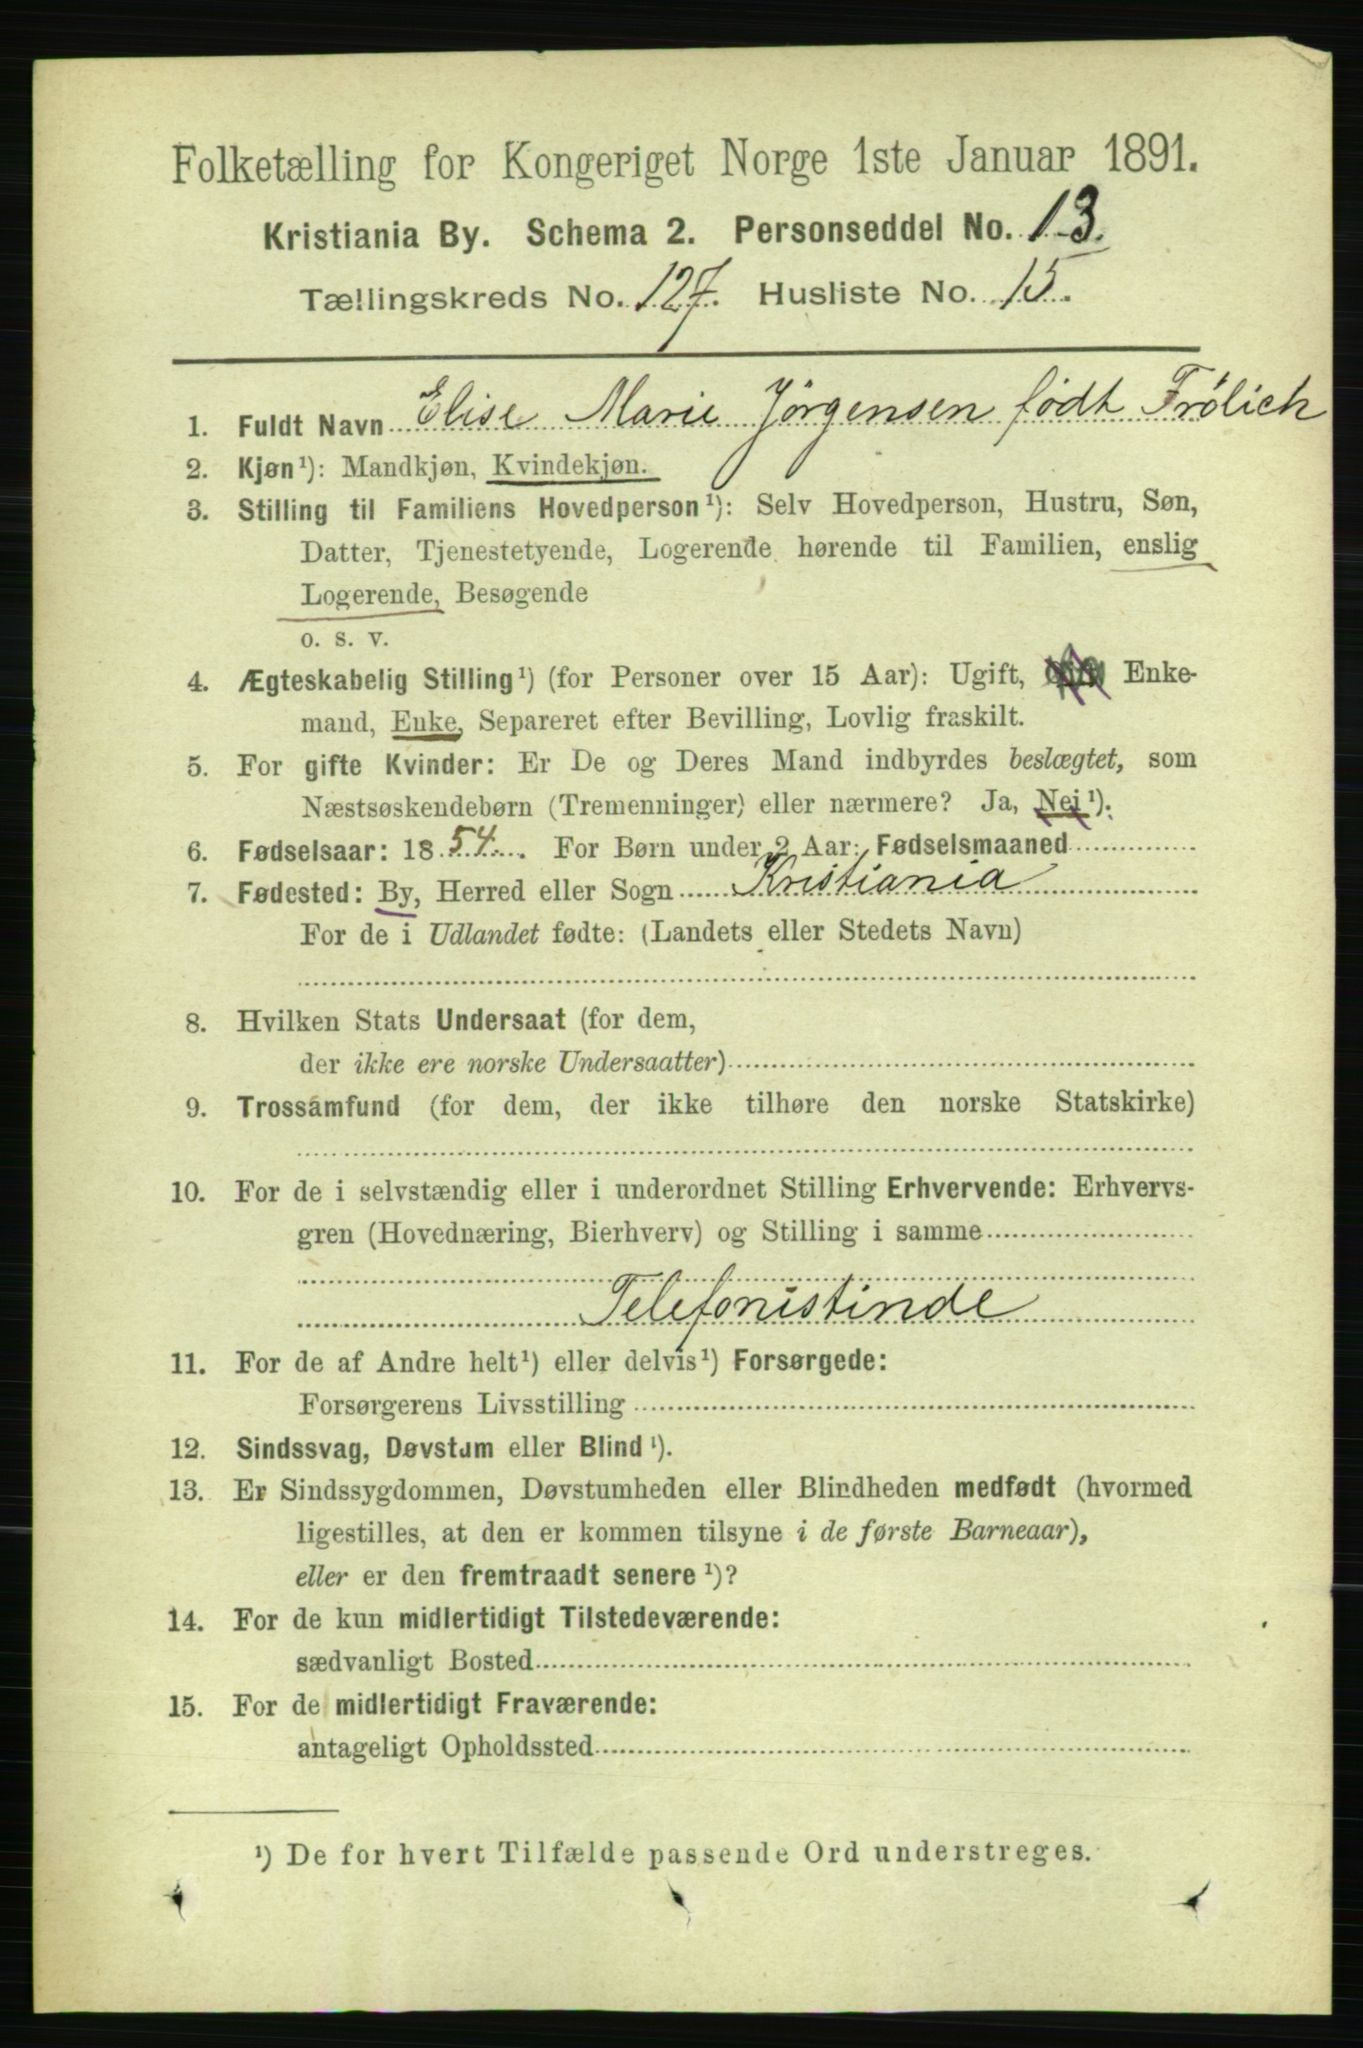 Folketælling for Kongeriget Norge 1ste Januar 1891.
Kristiania By. Schema 2. Personseddel No. 13.
Tællingskreds No. 127. Husliste No. 15.
1. Fuldt Navn Elise Marie Jørgensen født Frølich
2. Kjøn¹): Mandkjøn, Kvindekjøn.
3. Stilling til Familiens Hovedperson¹): Selv Hovedperson, Hustru, Søn,
Datter, Tjenestetyende, Logerende hørende til Familien, enslig
Logerende, Besøgende
o. s. v.
4. Ægteskabelig Stilling¹) (for Personer over 15 Aar): Ugift, Enke-
mand, Enke, Separeret efter Bevilling, Lovlig fraskilt.
5. For gifte Kvinder: Er De og Deres Mand indbyrdes beslægtet, som
Næstsøskendebørn (Tremenninger) eller nærmere? Ja, Nei¹).
6. Fødselsaar: 1854. For Børn under 2 Aar: Fødselsmaaned
7. Fødested: By, Herred eller Sogn Kristiania
For de i Udlandet fødte: (Landets eller Stedets Navn)
8. Hvilken Stats Undersaat (for dem,
der ikke ere norske Undersaatter)
9. Trossamfund (for dem, der ikke tilhøre den norske Statskirke)
10. For de i selvstændig eller i underordnet Stilling Erhvervende: Erhvervs-
gren (Hovednæring, Bierhverv) og Stilling i samme
Telefonistinde
11. For de af Andre helt¹) eller delvis¹) Forsørgede:
Forsørgerens Livsstilling
12. Sindssvag, Døvstum eller Blind¹).
13. Er Sindssygdommen, Døvstumheden eller Blindheden medfødt (hvormed
ligestilles, at den er kommen tilsyne i de første Barneaar),
eller er den fremtraadt senere¹)?
14. For de kun midlertidigt Tilstedeværende:
sædvanligt Bosted
15. For de midlertidigt Fraværende:
antageligt Opholdssted
¹) De for hvert Tilfælde passende Ord understreges.